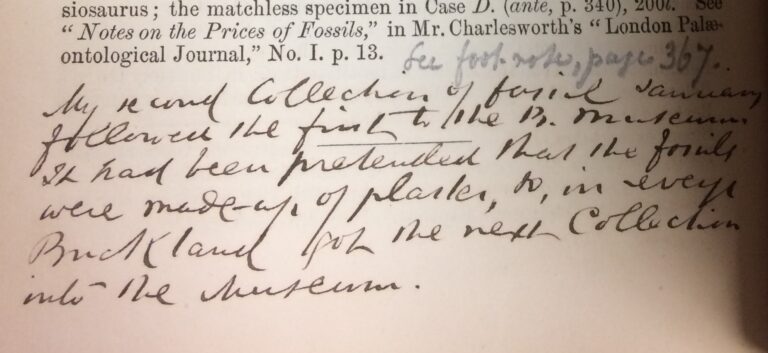 siosaurus; the matchless specimen in Case D. (ante, p. 340), 200l. See
"Notes on the Prices of Fossils," in Mr. Charlesworth's "London Palæ-
ontological Journal," No. I. p. 13. See foot-note, page 367.
My second Collection of fossil
followed the first to the B. Museum
It had been pretended that the fossils
were made-up of plaster, &, in
Buckland got the next Collection
into the Museum.